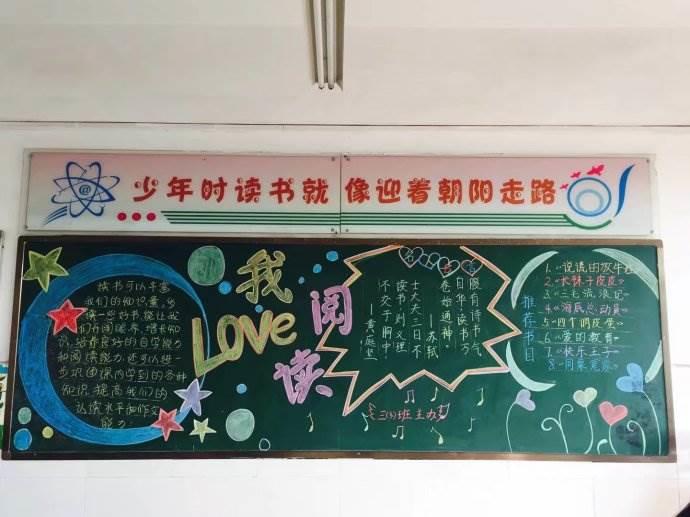 少年时读书就 像迎着朝阳走路
读书可以丰富
我们的知识量。多
读一些好书，能让我
们开阔眼界、增长知
识，培养良好的自学能力
和阅读能力。还可以进一
步巩固课内学到的各种
知识，提高我们的
读水平和作文
能力。
我
LOVE
阅
读
腹有诗书气
自华读书万
卷始通神
——苏轼
士大夫三日不
读书则义理
不交于胸中
——黄庭坚
班主办
推荐书目
1.《说谎的放牛
2.《长袜子皮皮》
3.《三毛流浪记》
4.《海底总动员》
5.《四个调皮蛋》
6.《爱的教育》
7.《快乐王子》
8.